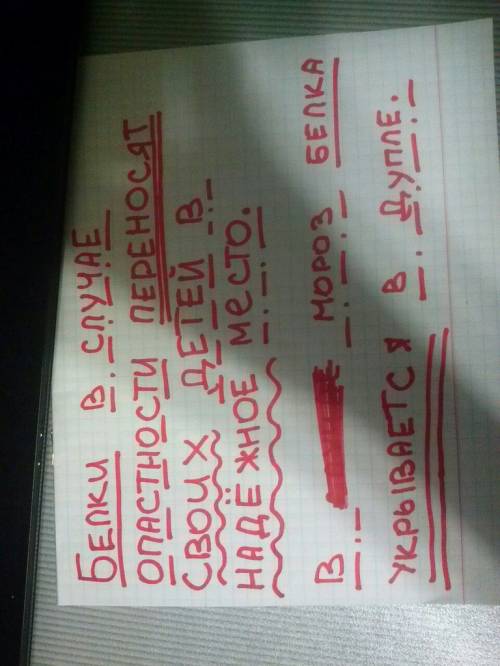 Белки в случае
опастности переносят
своих детей в
надёжное место.
В мороз белка
укрывается в дупле.